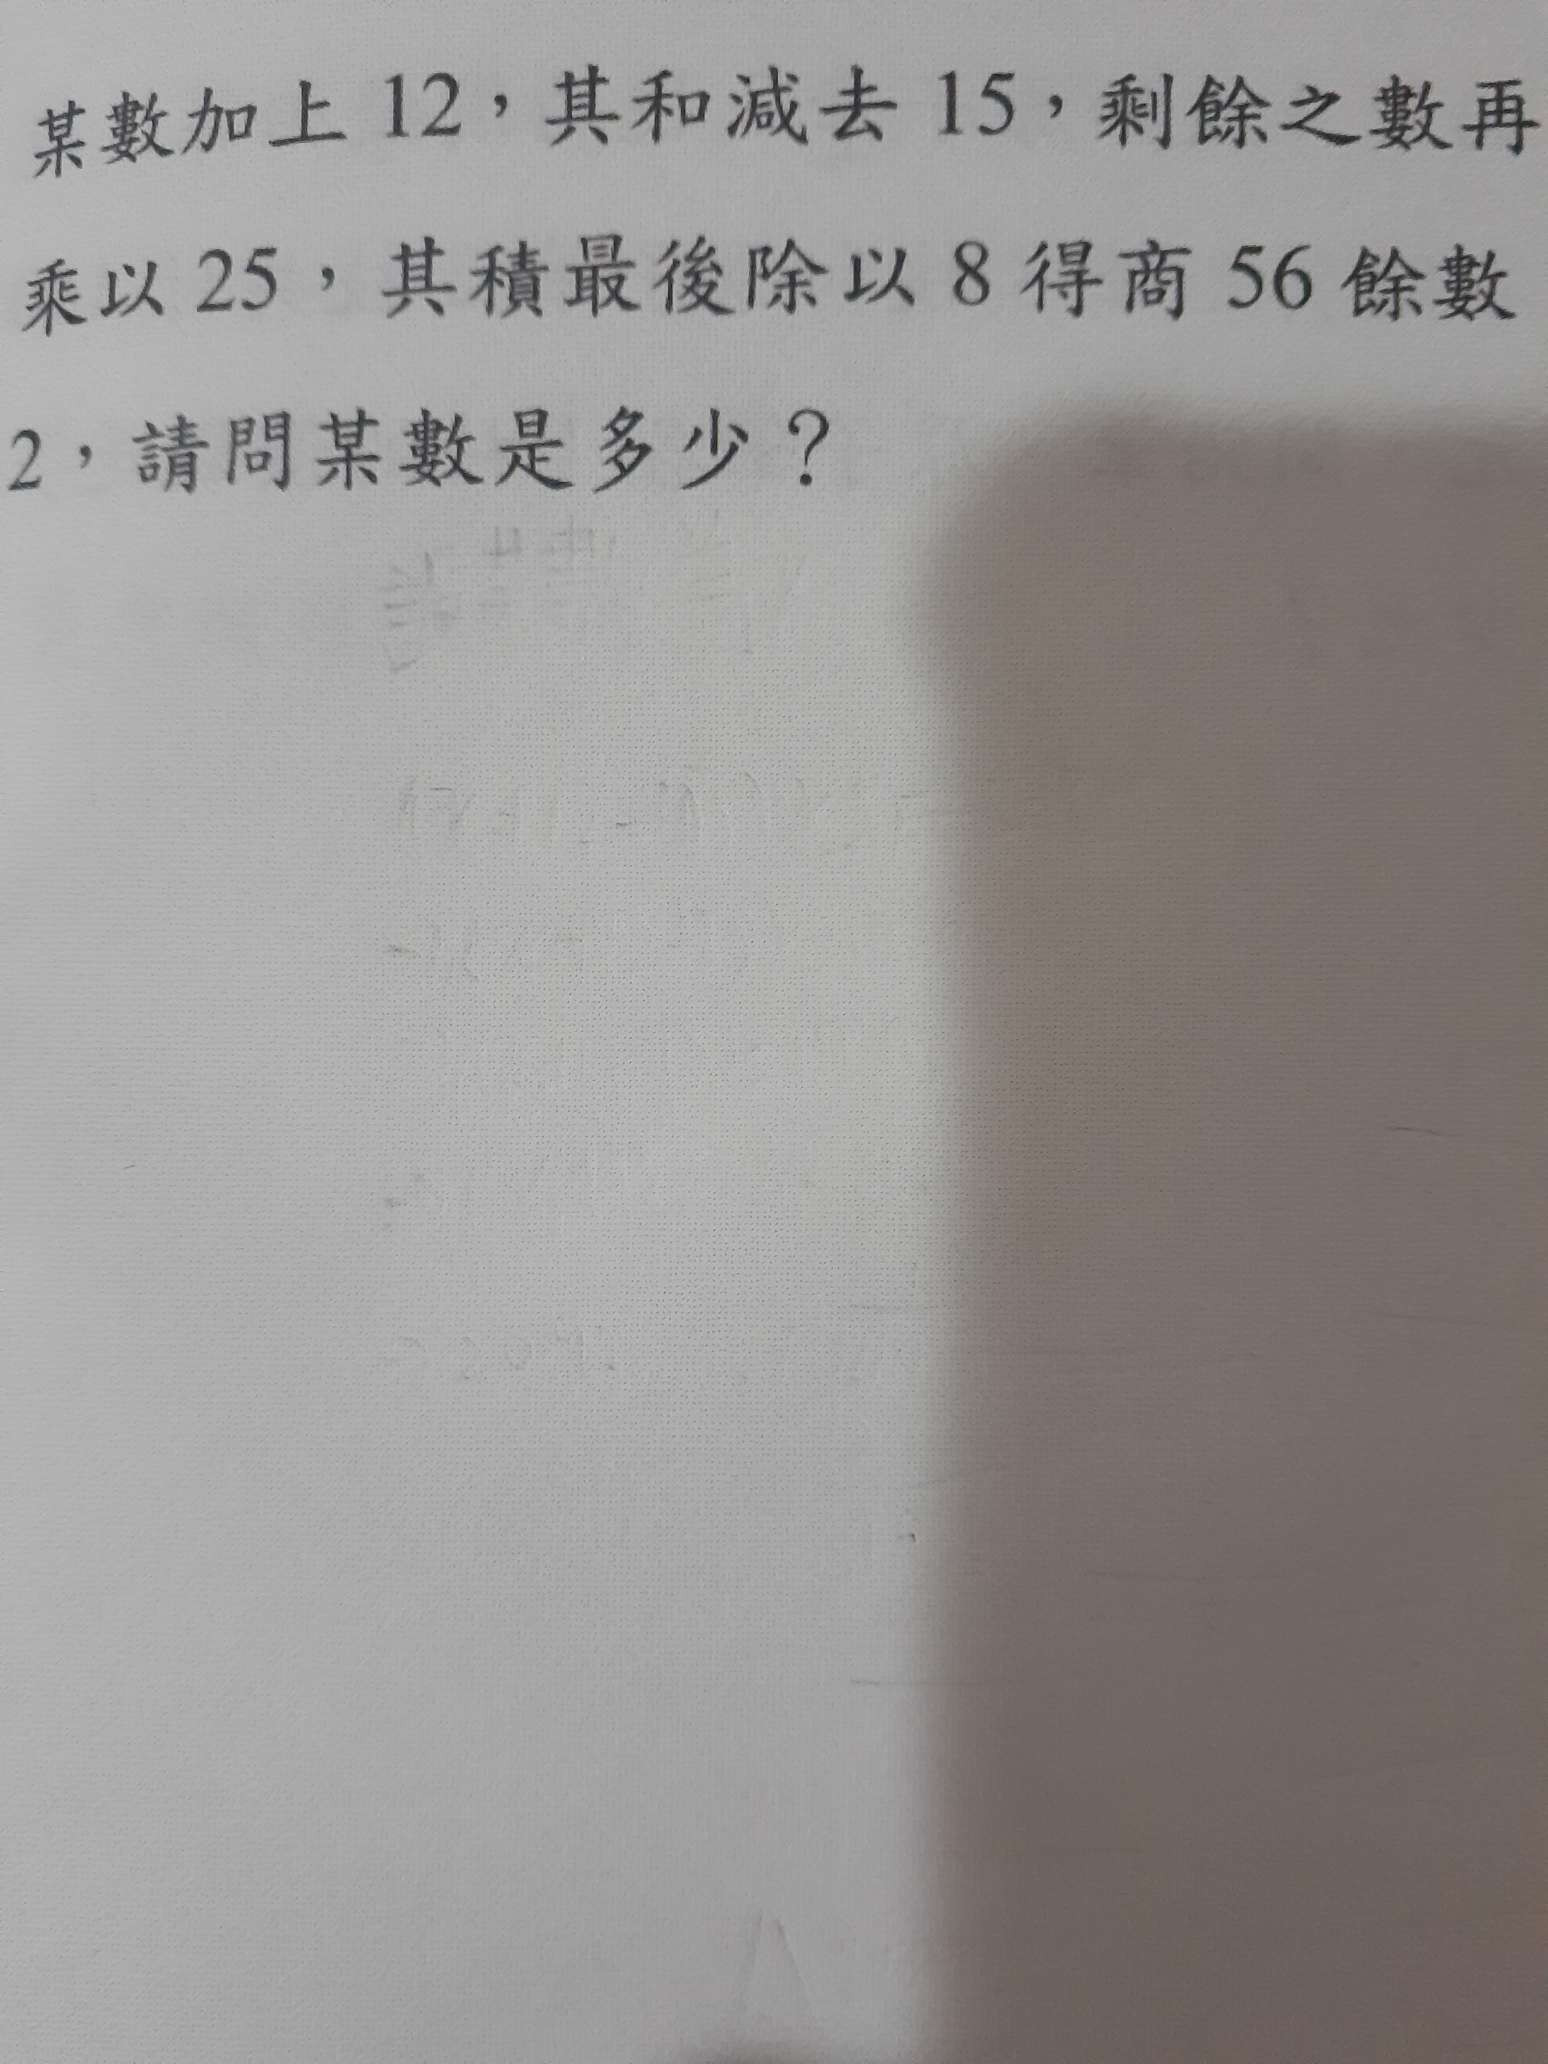 某數加上 12，其和減去 15，剩餘之數再
乘以 25，其積最後除以 8 得商 56 餘數
2，請問某數是多少？